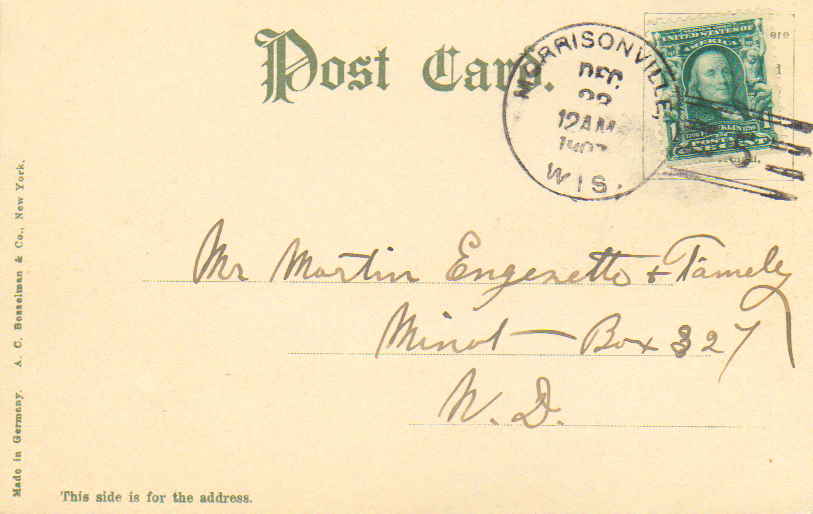 Post Card.
MORRISONVILLE,
DEC.
12AM
WIS.
UNITED STATES OF
AMERICA
Mr Martin Engesetto & Famely
Minot — Box 327
N. D.
Made in Germany. A. C. Bosselman & Co., New York.
This side is for the address.